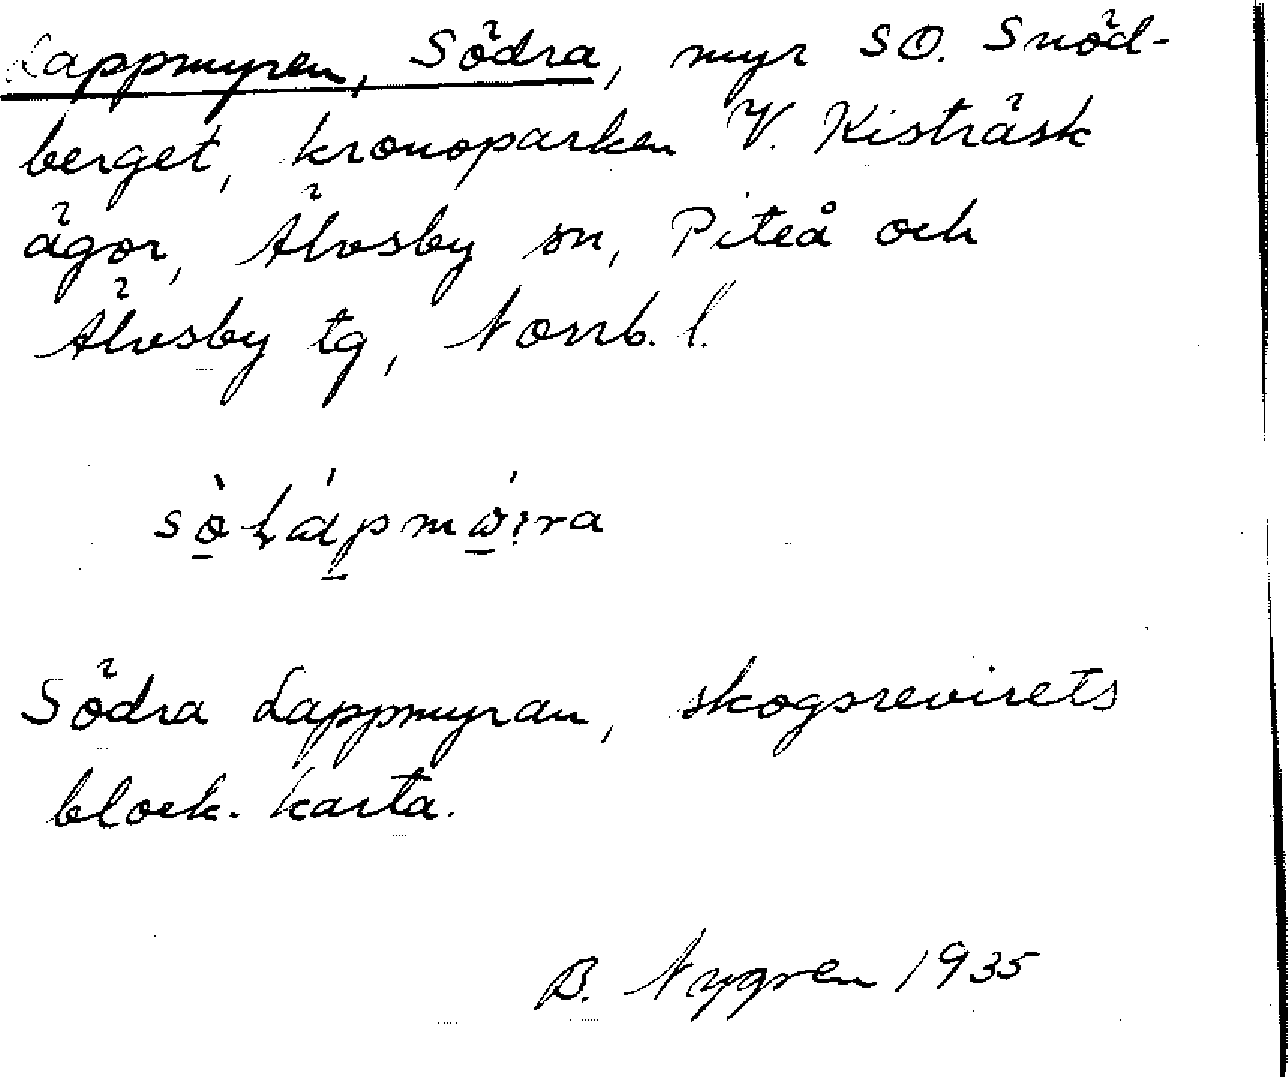 Lappmyren, Södra, myr SO. Snöd-
berget, kronoparken V. Kisträsk
ägor, Älvsby sn, Piteå och
Älvsby tg, Norrb. l.
Södra Lappmyran, skogsrevirets
block. karta.
B. Nygren 1935